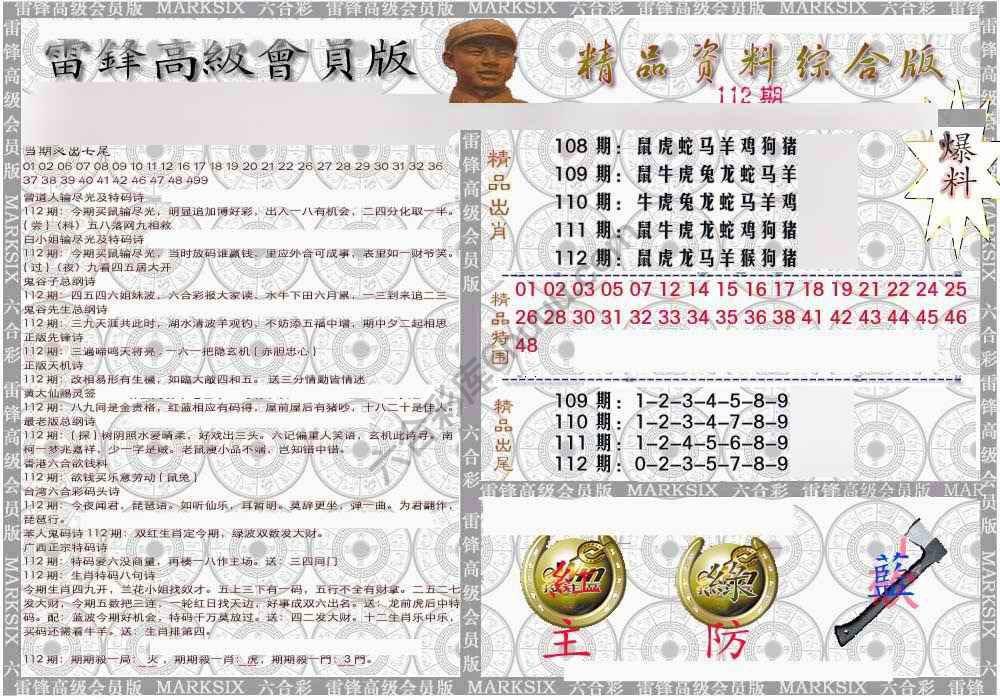 雷锋高级会员版 MARKSIX 六合彩 雷锋高级会员版 MARKSIX 六合彩 雷锋高级会员版 MARKSIX
雷鋒高級會員版
精品资料综合版
112期
爆料
当期灵出七尾
01 02 06 07 08 09 10 11 12 16 17 18 19 20 21 22 26 27 28 29 30 31 32 36
37 38 39 40 41 42 46 47 48 499
曾道人输尽光及特码诗
112期：今期买鼠输尽光，明显追加博好彩，出入一八有机会，二四分化取一半。
{尝}(料）五八落网九相救
白小姐输尽光及特码诗
112期：今期买鼠输尽光，当时放码谁赢钱，里应外合可成事，表里如一财爷笑。
{过}(夜）九看四五居大开
鬼谷子总纲诗
112期：四五四六姐妹波，六合彩报大家读，水牛下田六月累，一三到来追二三
鬼谷先生总纲诗
112期：三九天涯共此时，湖水清波羊观钓，不妨添五福中增，期中夕二起相思
正版先锋诗
112期：三遍啼鸣天将亮，一六一把隐玄机{赤胆忠心}
正版天机诗
112期：改相易形有生機，如臨大敵四和五。送三分情勤皆情迷
黄大仙赐灵签
112期：八九同是金贵格，红蓝相应有码得，屋前屋后有猪吵，十八二十是佳人。
最老版总纲诗
112期：{探}树阴照水爱晴柔，好戏出三头。六记偏重人笑语，玄机此诗寻。南
柯一梦兆嘉祥，少一字是贼。老鼠瘦小品不端，岂知错中错。
香港六合欲钱料
112期：欲钱买乐意劳动{鼠兔}
台湾六合彩码头诗
112期：今夜闻君，琵琶语。如听仙乐，耳暂明。莫辞更坐，弹一曲。为君翻作，
琵琶行。
本人鬼码诗112期：双红生肖定今期，绿波双数发大财。
广西正宗特码诗
112期：特码爱六没商量，再楼一八作主场。送：三四同门
112期：生肖特码八句诗
今期生肖四九开，兰花小姐找奴才。五上三下有一码，五行不全有财拿。二五二七
发大财，今期五数把三连，一轮红日找天边，好事成双六出名。送：龙前虎后中特
码。配：蓝波今期好机会，特码千万莫放过。送：四二发大财。十二生肖乐中乐，
买码还需看牛羊。送：生肖排第四。
112期：期期殺一局：火，期期殺一肖：虎，期期殺一門：3門。
精品出肖
108 期：鼠虎蛇马羊鸡狗猪
109 期：鼠牛虎兔龙蛇马羊
110 期：牛虎兔龙蛇马羊鸡
111 期：鼠牛虎龙蛇鸡狗猪
112 期：鼠虎龙马羊猴狗猪
精品特围
01 02 03 05 07 12 14 15 16 17 18 19 21 22 24 25
26 28 30 31 32 33 34 35 36 38 41 42 43 44 45 46
48
精品出尾
109 期：1-2-3-4-5-8-9
110 期：1-2-3-4-7-8-9
111 期：1-2-4-5-6-8-9
112 期：0-2-3-5-7-8-9
雷锋高级会员版 MARKSIX 六合彩 雷锋高级会员版 MARK
紅
綠
藍
主
防
雷锋高级会员版 MARKSIX 六合彩 雷锋高级会员版 MARKSIX 六合彩 雷锋高级会员版 MARKSIX